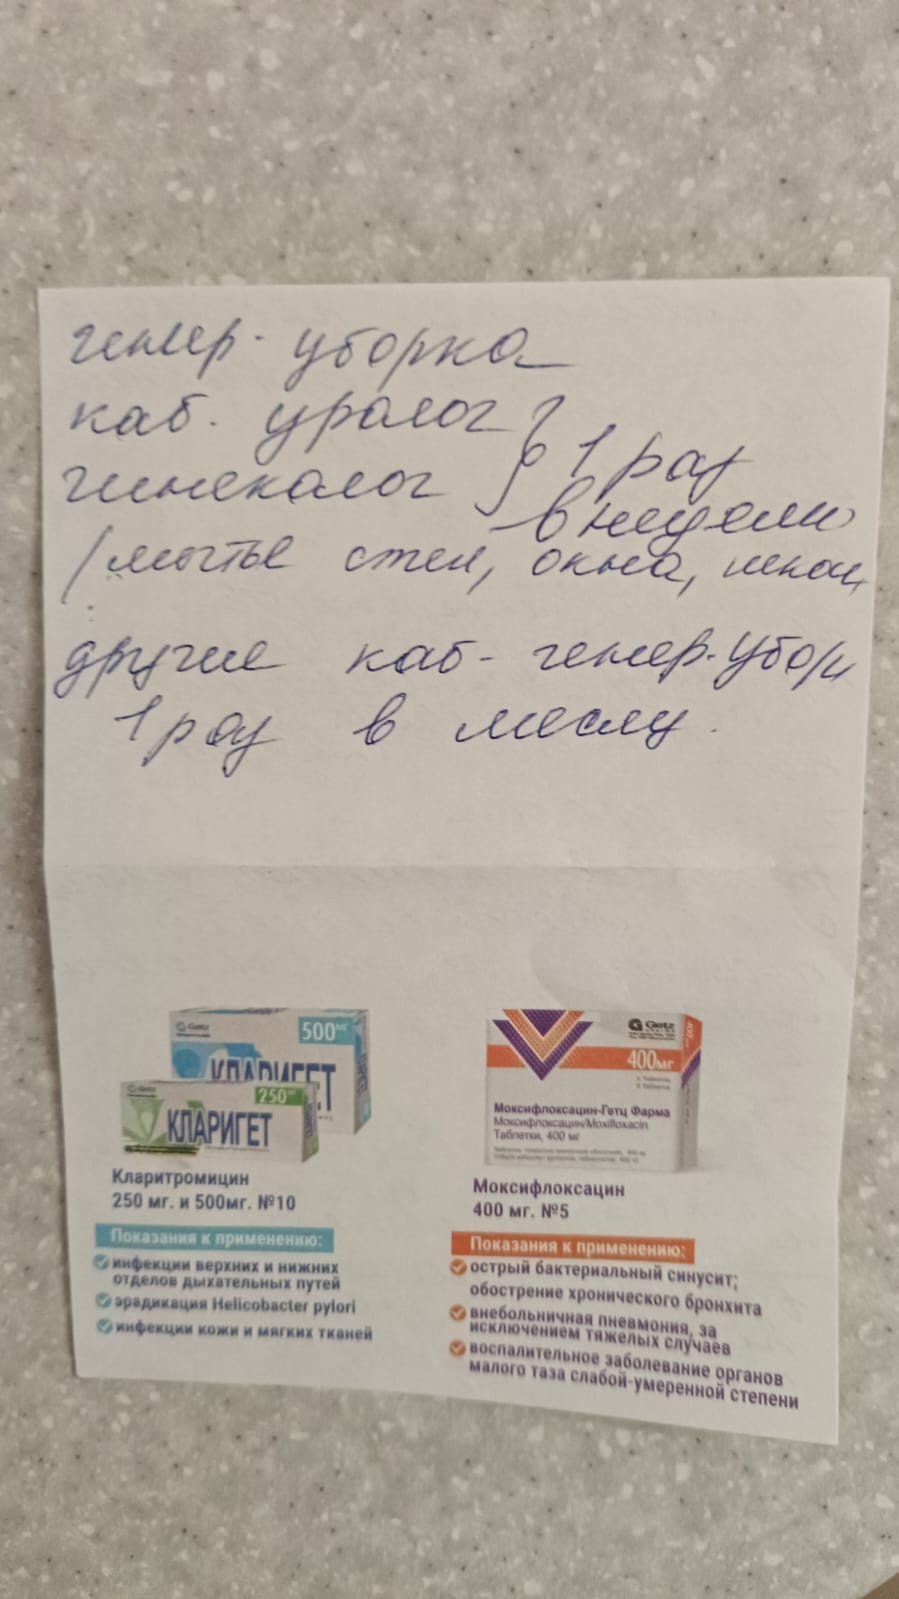 генер. уборка
каб. уролог } 1 раз
гинеколог
в недели
/мытье стен, окна,
другие каб- генер.убор
1 раз в месяц.
Getz
500мг
КЛАРИГЕТ
Getz
250мг
КЛАРИГЕТ
Кларитромицин
250 мг. и 500мг. №10
Показания к применению:
инфекции верхних и нижних
отделов дыхательных путей
эрадикация Helicobacter pylori
инфекции кожи и мягких тканей
Getz
400мг
Моксифлоксацин-Гетц Фарма
Моксифлоксацин/Moxifloxacin
Таблетки, 400 мг
Моксифлоксацин
400 мг. №5
Показания к применению:
острый бактериальный синусит;
обострение хронического бронхита
внебольничная пневмония, за
исключением тяжелых случаев
воспалительное заболевание органов
малого таза слабой-умеренной степени